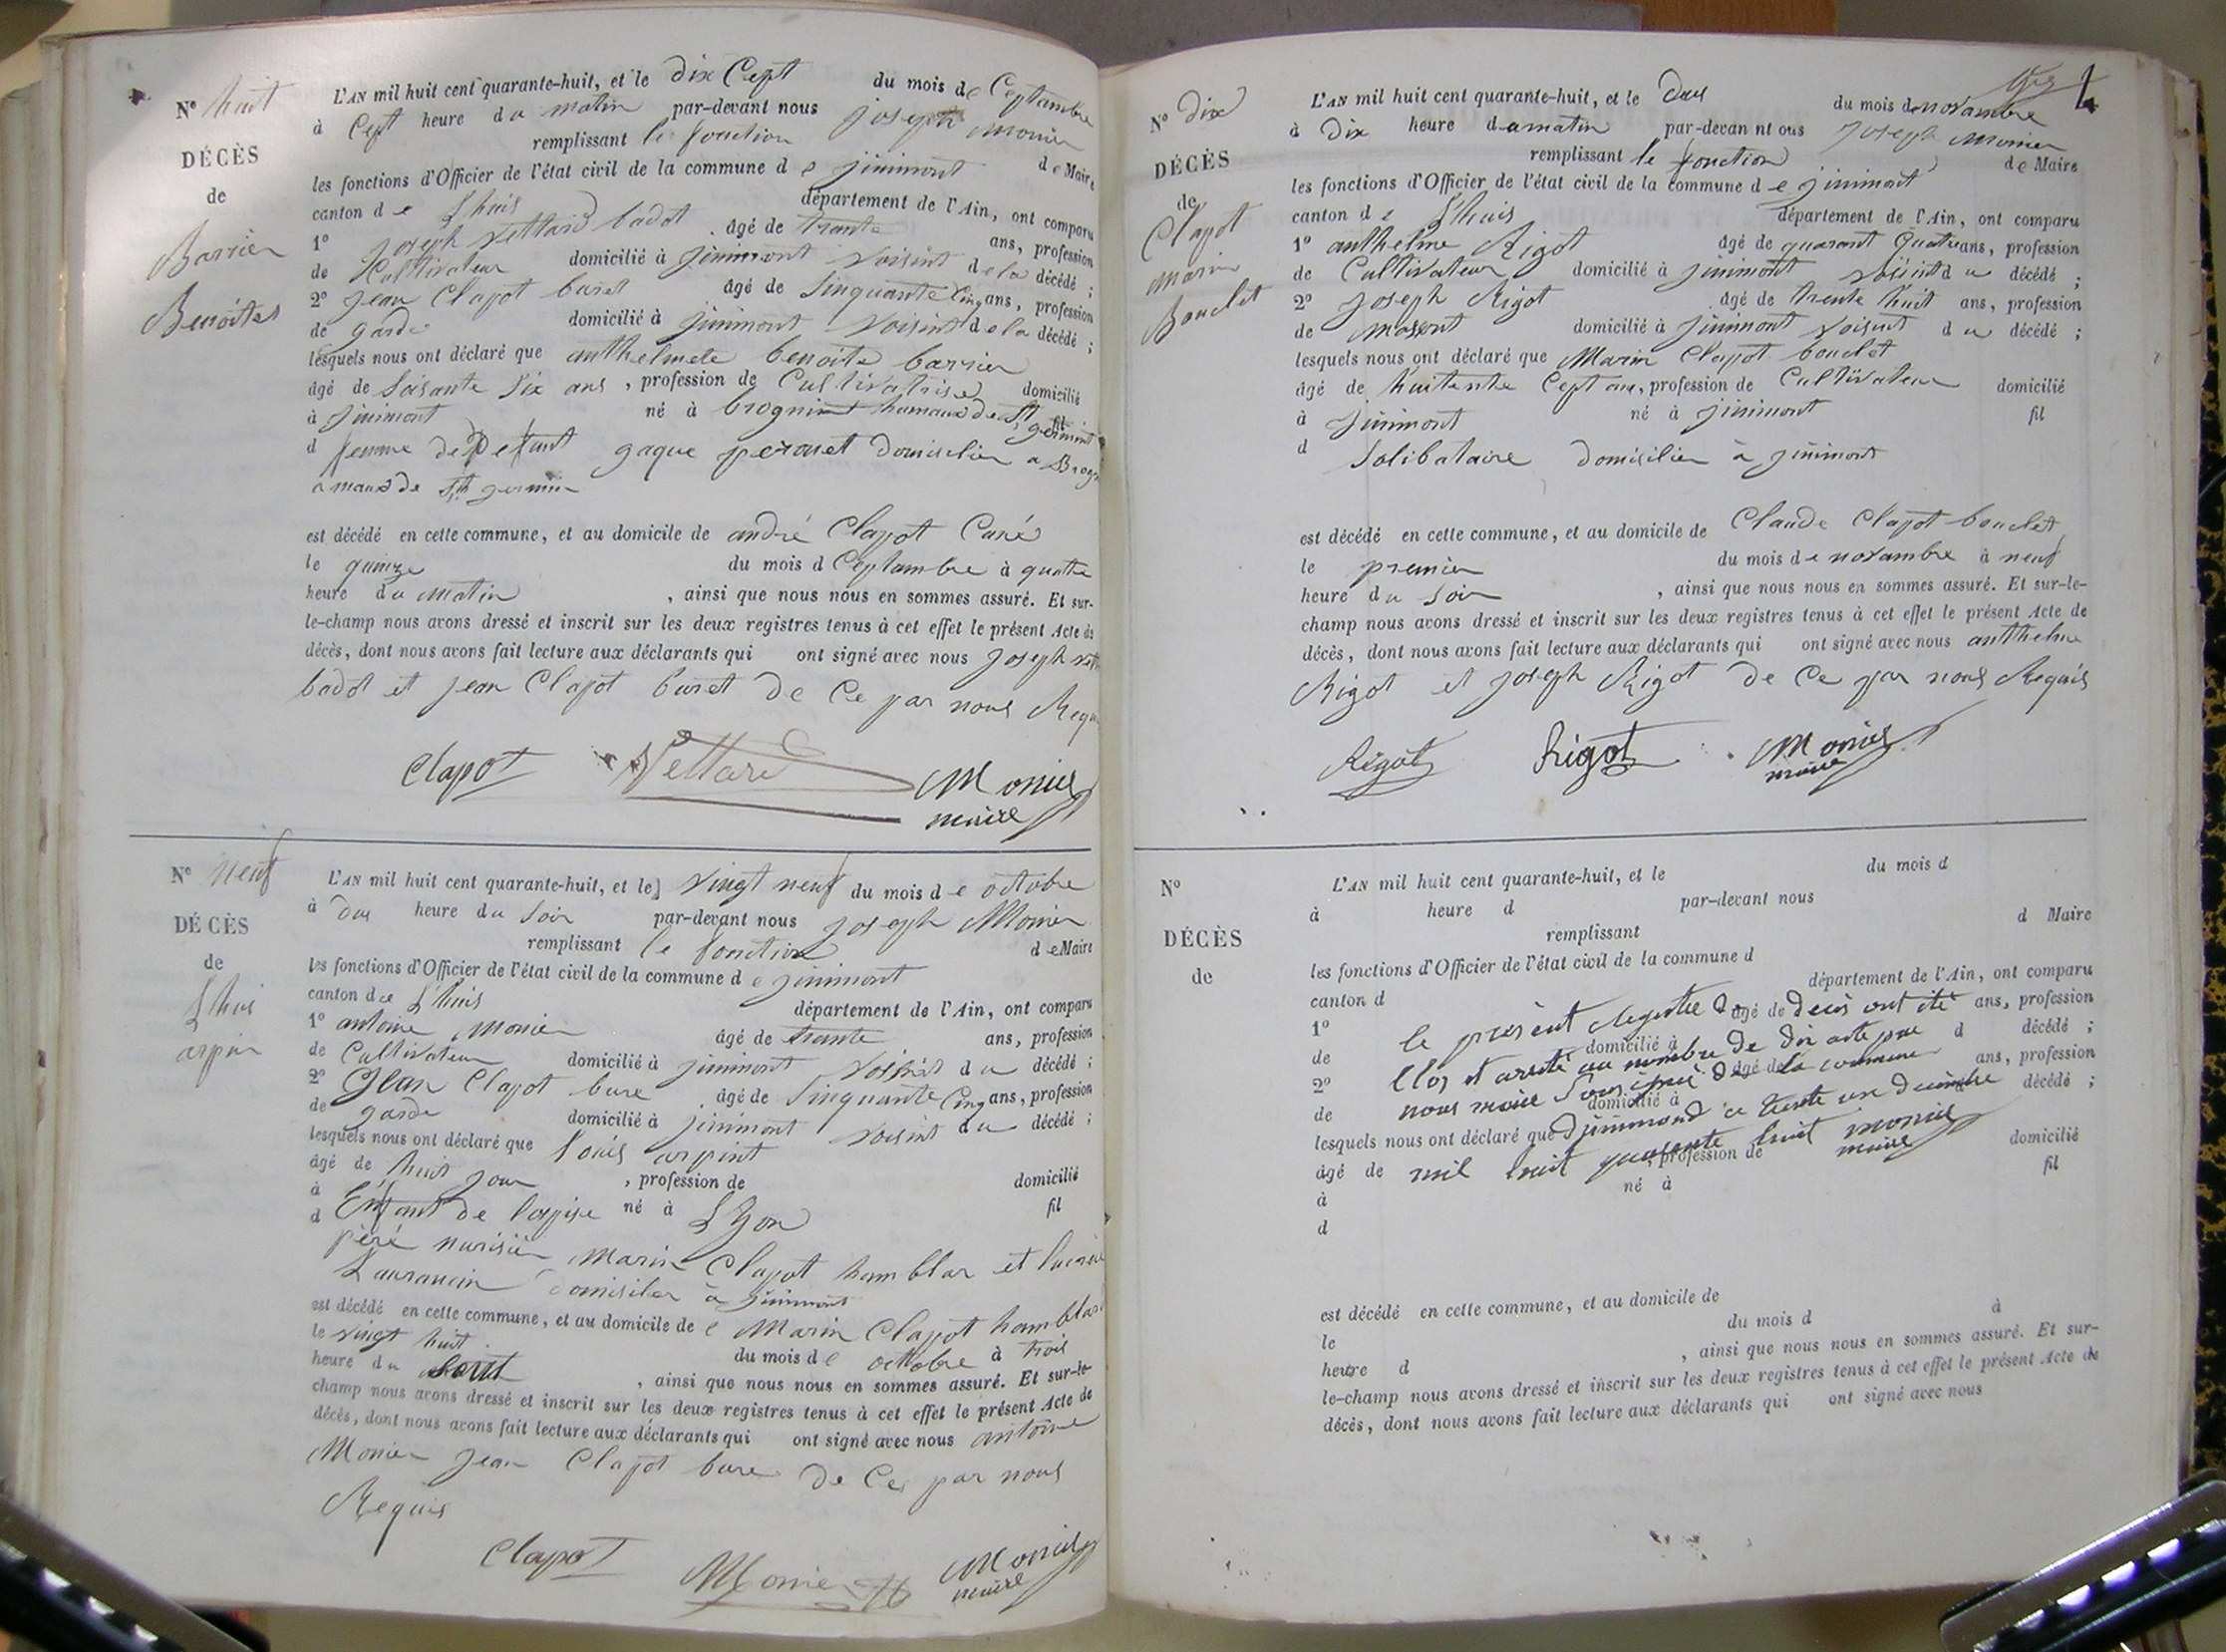 N° huit
DÉCÈS
de
Barrier
Benoites
L'AN mil huit cent quarante-huit, et le dix Cept du mois de Ceptambre
à Cept heure du matin par-devant nous joseph monier
remplissant le fonction de Maire
les fonctions d'Officier de l'état civil de la commune de jinimont
canton de Lhuis département de l'Ain, ont comparu
1° joseph Vettard badot âgé de trante ans, profession
de Cultivateur domicilié à jinimont voisint de la décédé ;
2° jean Clapot buret âgé de Sinquante Cinq ans, profession
de garde domicilié à jinimont voisint de la décédé ;
lesquels nous ont déclaré que anthelmete benoite barrier
âgé de Soisante Six ans, profession de Cultivatrise domicilié
à jinimont né à brognint hamaux de St germint fil
d femme de Defunt gaque perouset domicilier a
amaux de St germin
est décédé en cette commune, et au domicile de andré Clapot Cané
le quinze du mois d Ceptambre à quatre
heure du matin , ainsi que nous nous en sommes assuré. Et sur-
le-champ nous avons dressé et inscrit sur les deux registres tenus à cet effet le présent Acte de
décès, dont nous avons fait lecture aux déclarants qui ont signé avec nous joseph
badot et jean Clapot buret de Ce par nous
Clapot Vettard Monier
maire
N° neuf
DÉCÈS
de
Lhuis
arpin
L'AN mil huit cent quarante-huit, et le vingt neuf du mois de octobre
à dus heure du soir par-devant nous joseph Monier
remplissant le fonction de Maire
les fonctions d'Officier de l'état civil de la commune de jinimont
canton de Lhuis département de l'Ain, ont comparu
1° antoine monier âgé de trante ans, profession
de Cultivateur domicilié à jinimont voisint du décédé ;
2° Jean Clapot bure âgé de Sinquante Cinq ans, profession
de garde domicilié à jinimont voisint du décédé ;
lesquels nous ont déclaré que louis arpint
âgé de huit jour , profession de domicilié
à Enfant de lospise né à Lyon fil
d père nurisier Marin Clapot hamblar et
Laurancin domisilier à jinimont
est décédé en cette commune, et au domicile de Marin Clapot hamblar
le vingt huit du mois de octobre à trois
heure du , ainsi que nous nous en sommes assuré. Et sur-le-
champ nous avons dressé et inscrit sur les deux registres tenus à cet effet le présent Acte de
décès, dont nous avons fait lecture aux déclarants qui ont signé avec nous antoine
Monier jean Clapot bure de Ce par nous
Requis
Clapot Monier Monier
maire
N° dix
DÉCÈS
de
Clapot
marin
Bouclet
L'AN mil huit cent quarante-huit, et le dus du mois de novambre
à dix heure du matin par-devan nt ous joseph monier
remplissant le fonction de Maire
les fonctions d'Officier de l'état civil de la commune de jinimont
canton de Lhuis département de l'Ain, ont comparu
1° anthelme Rigot âgé de quarant quatre ans, profession
de Cultivateur domicilié à jinimont voisint du décédé ;
2° joseph Rigot âgé de trente huit ans, profession
de masont domicilié à jinimont voisint du décédé ;
lesquels nous ont déclaré que Marin Clapot bouclet
âgé de huitente Cept ans, profession de Cultivateur domicilié
à jinimont né à jinimont fil
d Solibataire domicilier à jinimont
est décédé en cette commune, et au domicile de Claude Clapot bouclet
le premier du mois de novambre à neuf
heure du soir , ainsi que nous nous en sommes assuré. Et sur-le-
champ nous avons dressé et inscrit sur les deux registres tenus à cet effet le présent Acte de
décès, dont nous avons fait lecture aux déclarants qui ont signé avec nous anthelme
Rigot et joseph Rigot de Ce par nous Requis
Rigot Rigot Monier
maire
N°
DÉCÈS
de
L'AN mil huit cent quarante-huit, et le du mois d
à heure d par-devant nous
remplissant d Maire
les fonctions d'Officier de l'état civil de la commune d
canton d département de l'Ain, ont comparu
1° âgé de ans, profession
le présent Registre de decès ont été
de domicilié à d décédé ;
Clos et arreté au nombre de dix acte par
2° âgé de ans, profession
nous maire Sousigné de la commune
de domicilié à décédé ;
lesquels nous ont déclaré que
de jinimond ce trente un decimbre
âgé de , profession de domicilié
mil huit quarente huit monier
maire
à né à fil
d
est décédé en cette commune, et au domicile de
le du mois d à
heure d , ainsi que nous nous en sommes assuré. Et sur-
le-champ nous avons dressé et inscrit sur les deux registres tenus à cet effet le présent Acte de
décès, dont nous avons fait lecture aux déclarants qui ont signé avec nous